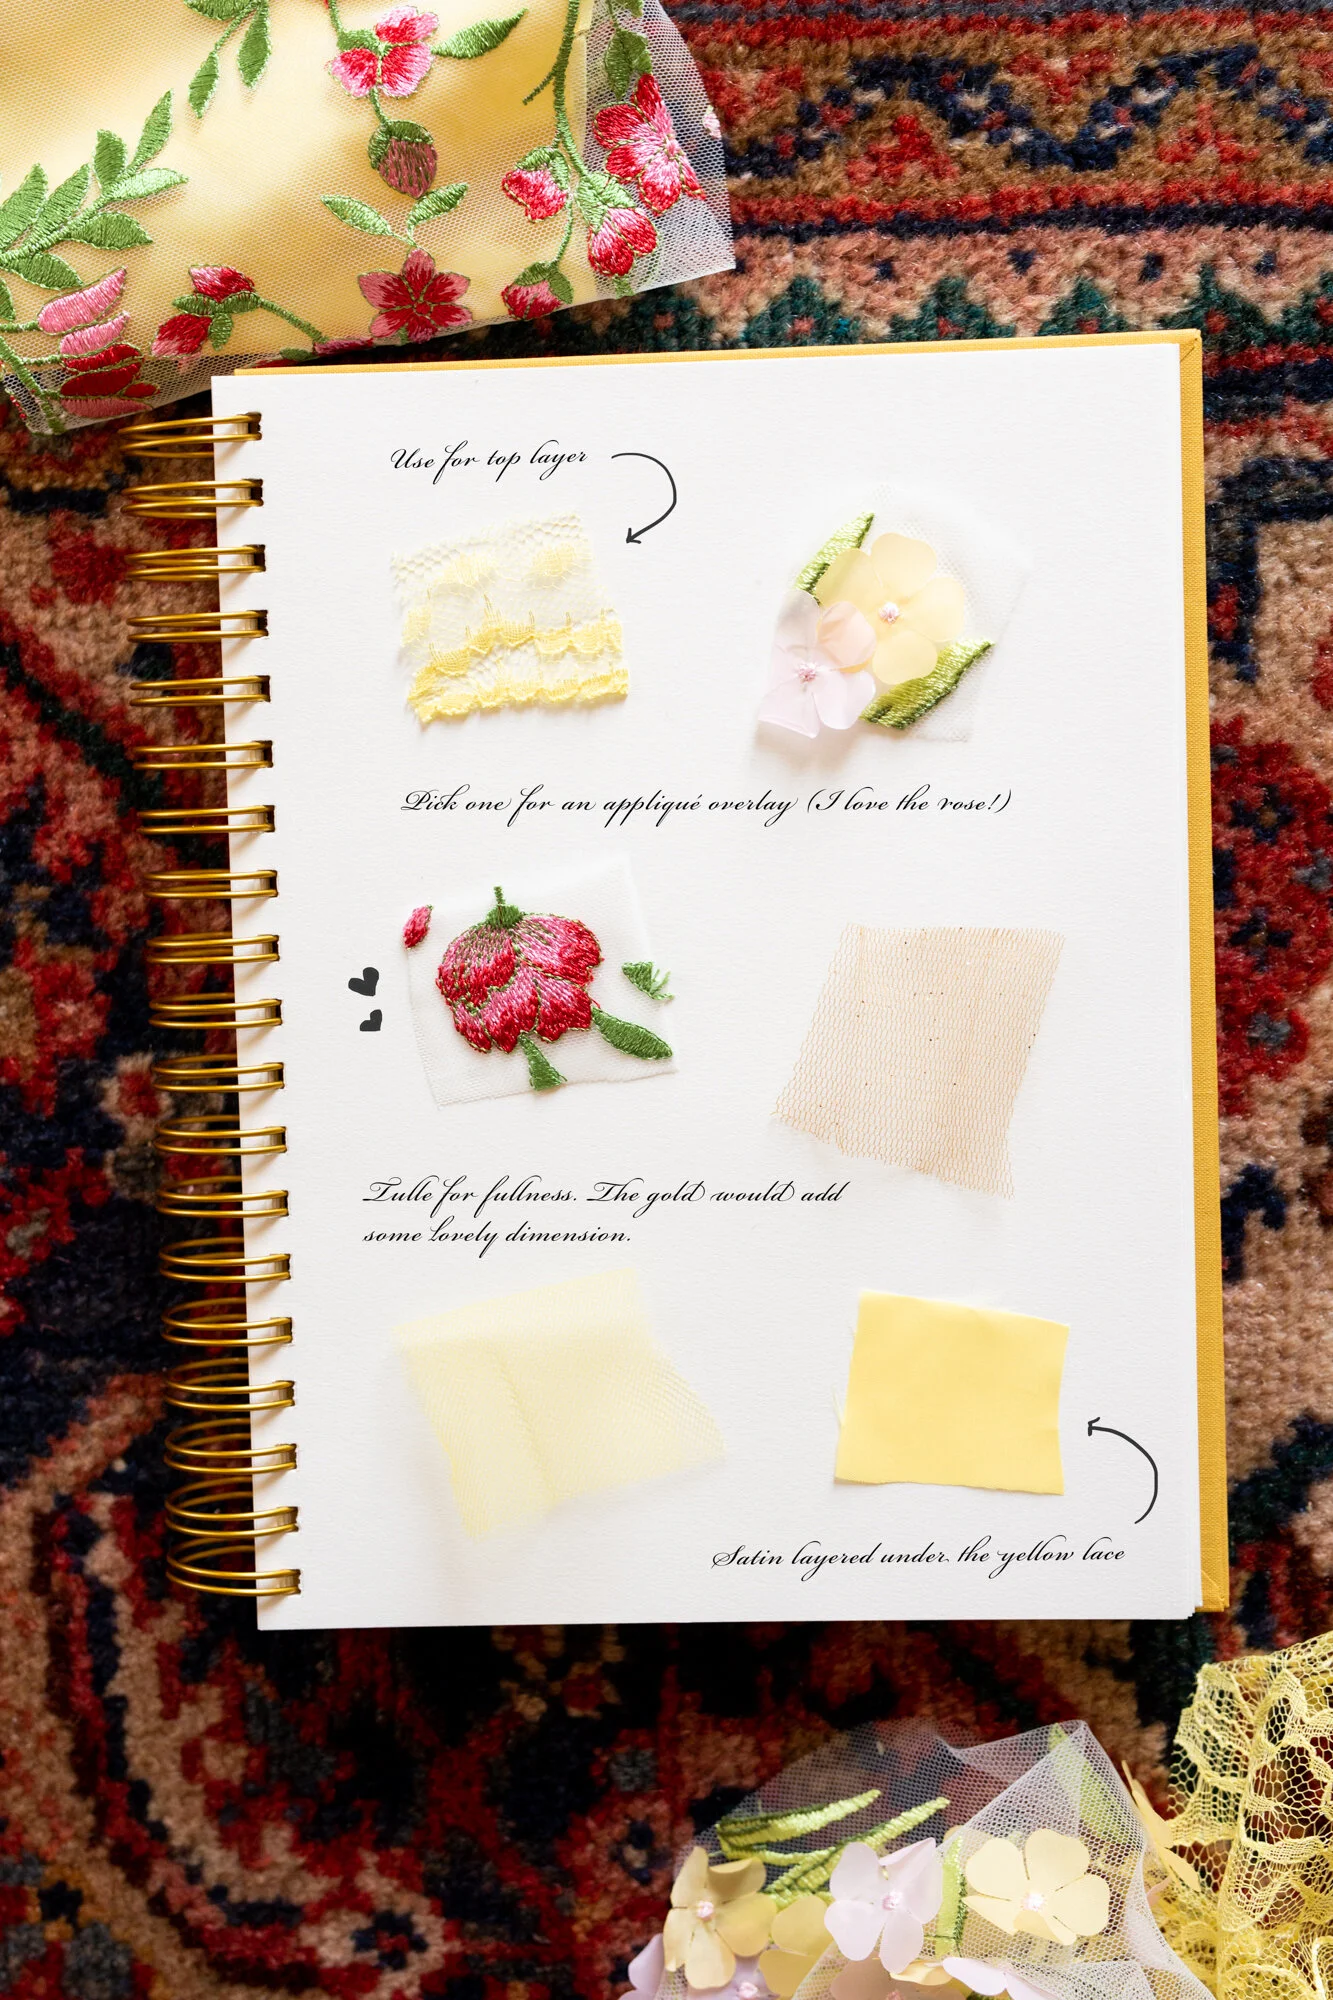 Use for top layer
Pick one for an appliqué overlay (I love the rose!)
Tulle for fullness. The gold would add
some lovely dimension.
Satin layered under the yellow lace